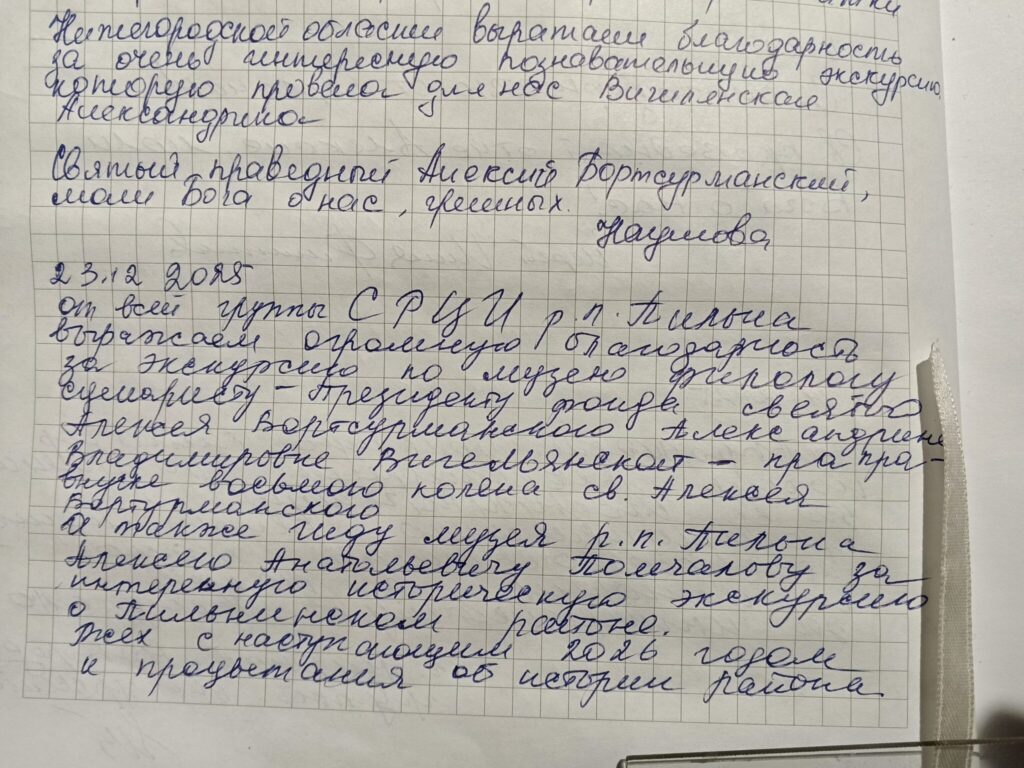 Нижегородской области выражаем благодарность
за очень интересную познавательную экскурсию,
которую провела для нас Вигилянская
Александрина
Святый праведный Алексий Бортсурманский,
моли Бога о нас, грешных.
Наумова
23.12 2025
от всей группы СРЦИ р.п. Пильна
выражаем огромную благодарность
за экскурсию по музею филологу
сценаристу - Президенту фонда святого
Алексея Бортсурманского Александрине
Владимировне Вигельянской - прапра-
внуке восьмого колена св. Алексея
Бортурманского
а также гиду музея р.п. Пильна
Алексею Анатольевичу за
интересную историческую экскурсию
о Пильнинском районе.
Всех с наступающим 2026 годом
и процветания об истории района